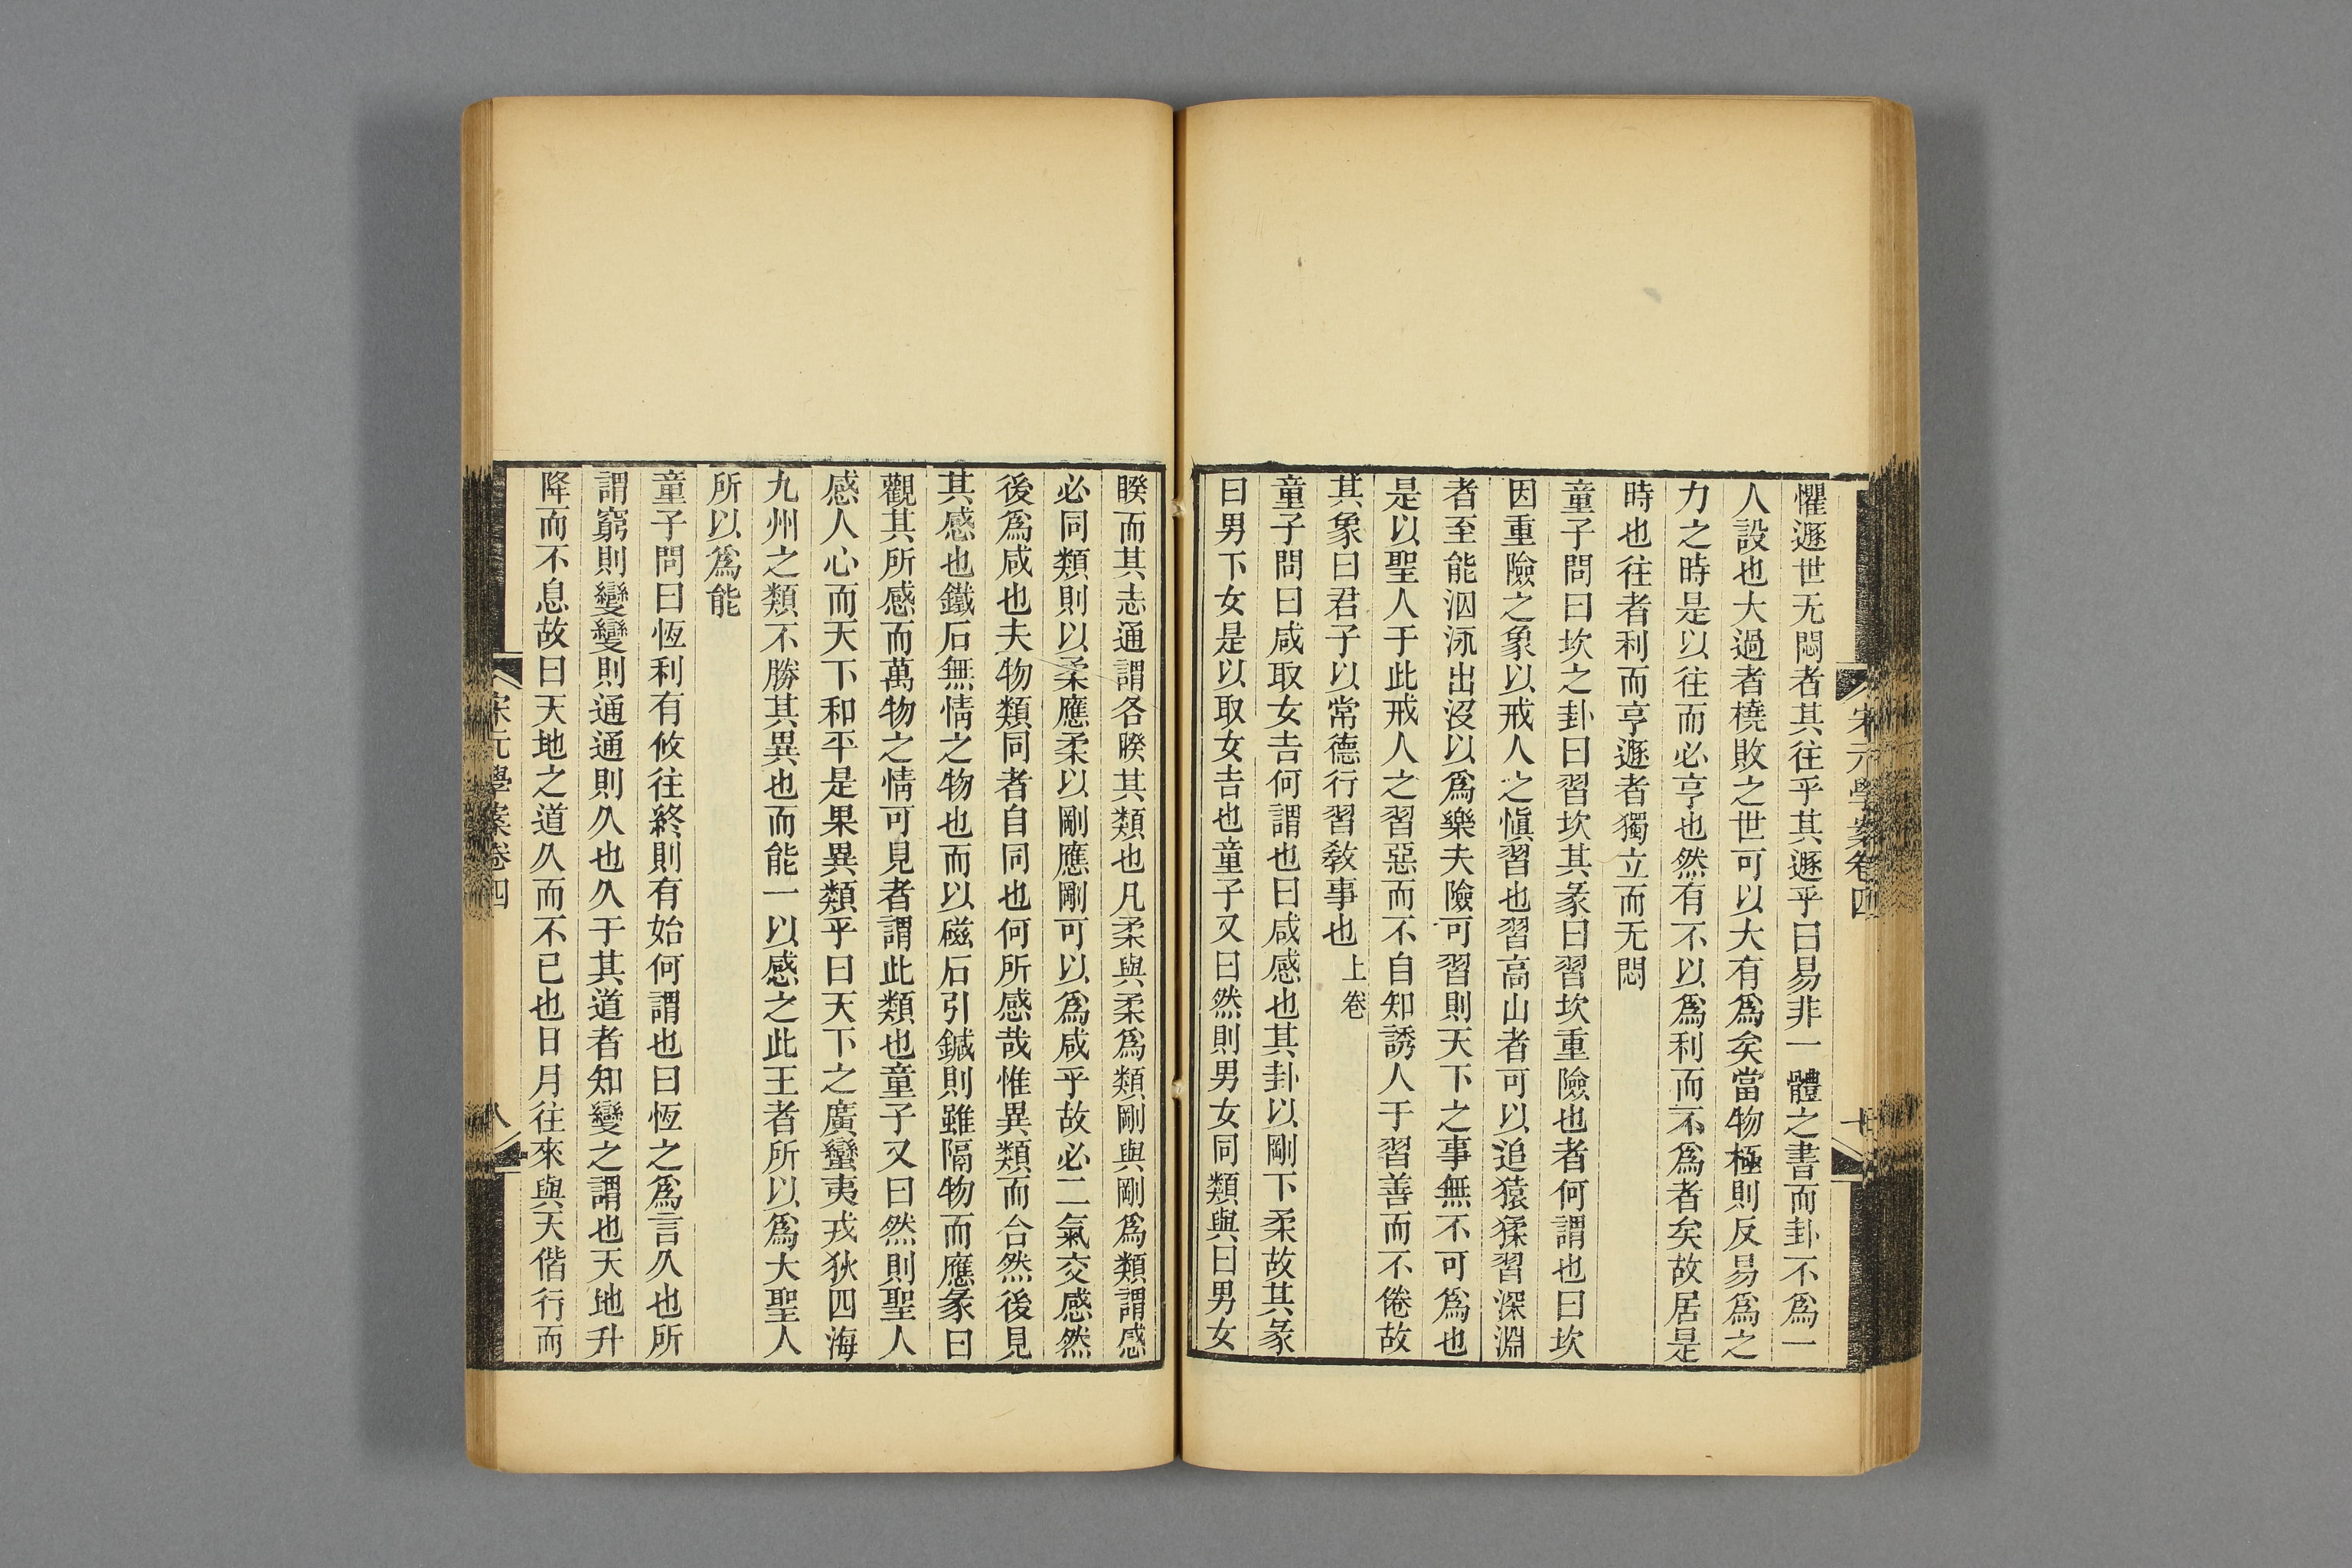 宋元學案卷四
懼遯世无悶者其往乎其遯乎曰易非一體之書而卦不爲一
人設也大過者橈敗之世可以大有爲矣當物極則反易爲之
力之時是以往而必亨也然有不以爲利而不爲者矣故居是
時也往者利而亨遯者獨立而无悶
童子問曰坎之卦曰習坎其彖曰習坎重險也者何謂也曰坎
因重險之象以戒人之愼習也習高山者可以追猿猱習深淵
者至能泅泳出沒以爲樂夫險可習則天下之事無不可爲也
是以聖人于此戒人之習惡而不自知誘人于習善而不倦故
其象曰君子以常德行習敎事也上卷
童子問曰咸取女吉何謂也曰咸感也其卦以剛下柔故其彖
曰男下女是以取女吉也童子又曰然則男女同類與曰男女
睽而其志通謂各睽其類也凡柔與柔爲類剛與剛爲類謂感
必同類則以柔應柔以剛應剛可以爲咸乎故必二氣交感然
後爲咸也夫物類同者自同也何所感哉惟異類而合然後見
其感也鐵石無情之物也而以磁石引鍼則雖隔物而應彖曰
觀其所感而萬物之情可見者謂此類也童子又曰然則聖人
感人心而天下和平是果異類乎曰天下之廣蠻夷戎狄四海
九州之類不勝其異也而能一以感之此王者所以爲大聖人
所以爲能
童子問曰恆利有攸往終則有始何謂也曰恆之爲言久也所
謂窮則變變則通通則久也久于其道者知變之謂也天地升
降而不息故曰天地之道久而不已也日月往來與天偕行而
宋元學案卷四
八